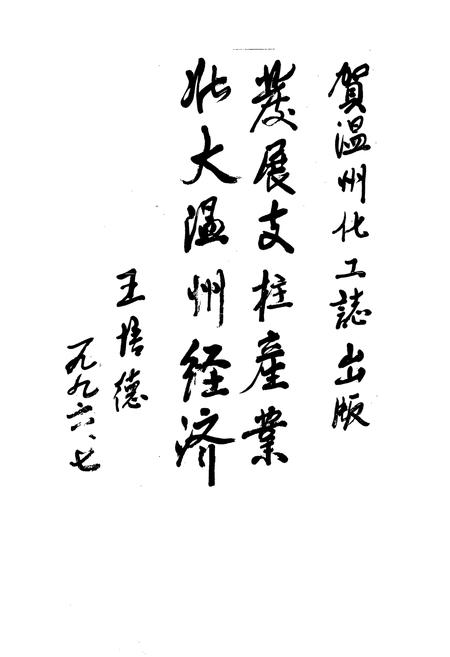 賀温州化工誌出版
發展支柱産業
壮大温州経济
王培德
一九九六、七